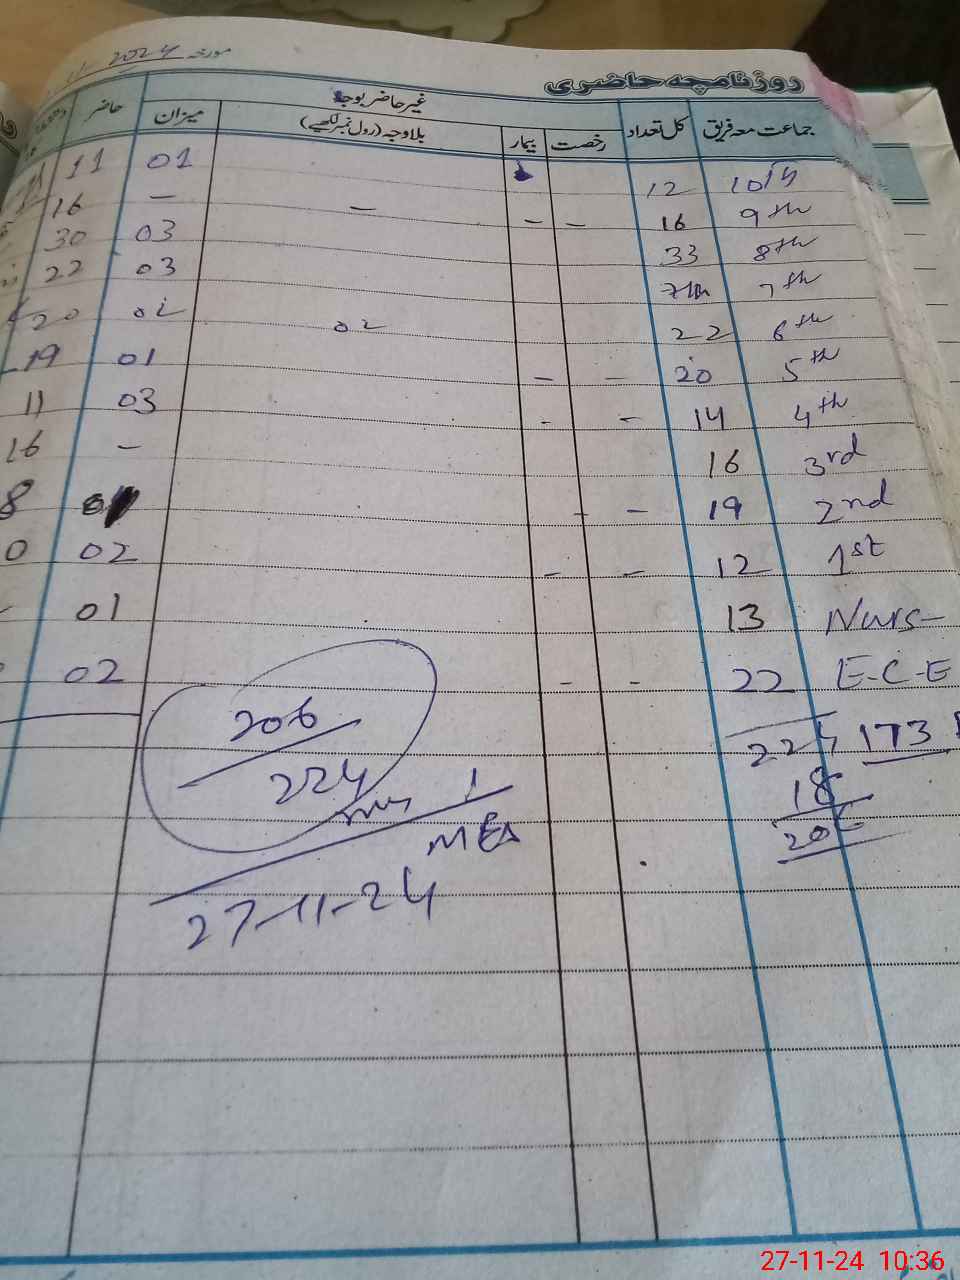 مورخہ 11 2024
روزنامچہ حاضری
جماعت معہ فریق کل تعداد غیر حاضر بوجہ میزان حاضر
رخصت بیمار بلاوجہ (رول نمبر لکھیے)
10th 12 01 11
9th 16 – – – – 16
8th 33 03 30
7th 03 22
6th 22 02 02 20
5th 20 – – 01 19
4th 14 – – 03 11
3rd 16 – 16
2nd 19 – –
1st 12 – – 02
Nurs– 13 01
E-C-E 22 – – 02
224 173
18
206
224
MEA
27-11-24
27-11-24 10:36